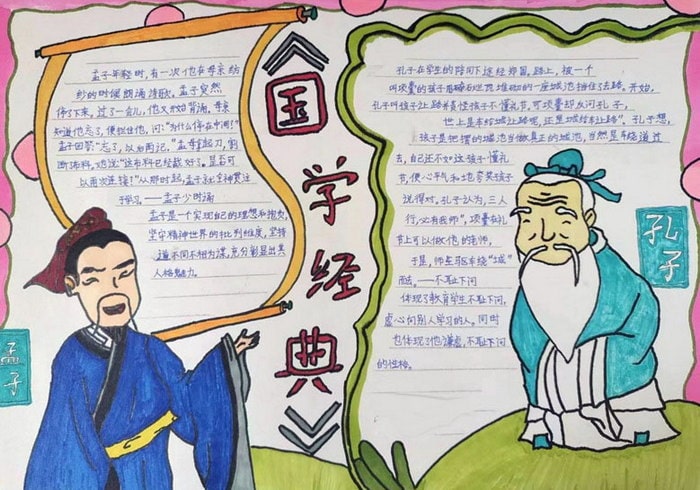 《国学经典》
孟子
孟子年轻时,有一次他在母亲纺
纱的时候朗诵诗歌,孟子突然
停了下来,过了一会儿,他又开始背诵。母亲
知道他忘了,便叫住他,问:"为什么停在中间?"
孟子回答"忘了,以后再记,"孟母拿起刀,割
断布料,她说"这布料已经裁好了,是否可
以再次连接?"从那时起,孟子就全神贯注
于学习。——孟子少时诵
孟子是一个实现自己的理想和抱负,
坚守精神世界的批判维度,坚持
道不同不相为谋,充分彰显出其
人格魅力。
孔子
孔子在学生的陪同下途经郑国,路上,被一个
叫项橐的孩子用碎石泥巴堆砌的一座城池挡住了去路。开始,
孔子叫孩子让路并责怪孩子不懂礼节,可项橐却反问孔子,
世上是车给城让路呢,还是城给车让路",孔子想,
孩子是把摆的城池当做真正的城池,当然是车绕道过
去,自己还不如这孩子懂礼
节,便心平气和地夸奖孩子
说得对,孔子认为,三人
行,必有我师",项橐在礼
节上可以做他的老师,
于是,师生驱车绕"城"
而去。——不耻下问
体现了教育学生不耻下问,
虚心向别人学习的人。同时
也体现了他谦虚,不耻下问
的性格。